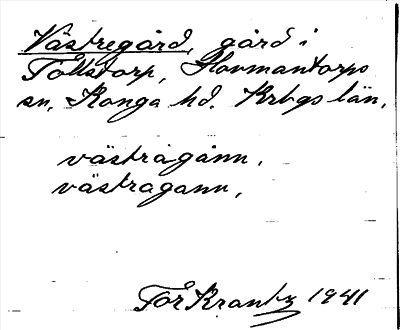 Västregård, gård i
Tollstorp, Hovmantorps
sn. Konga hd. Krbgs län.
västrågånn.
västragann,
Tor Krantz 1941